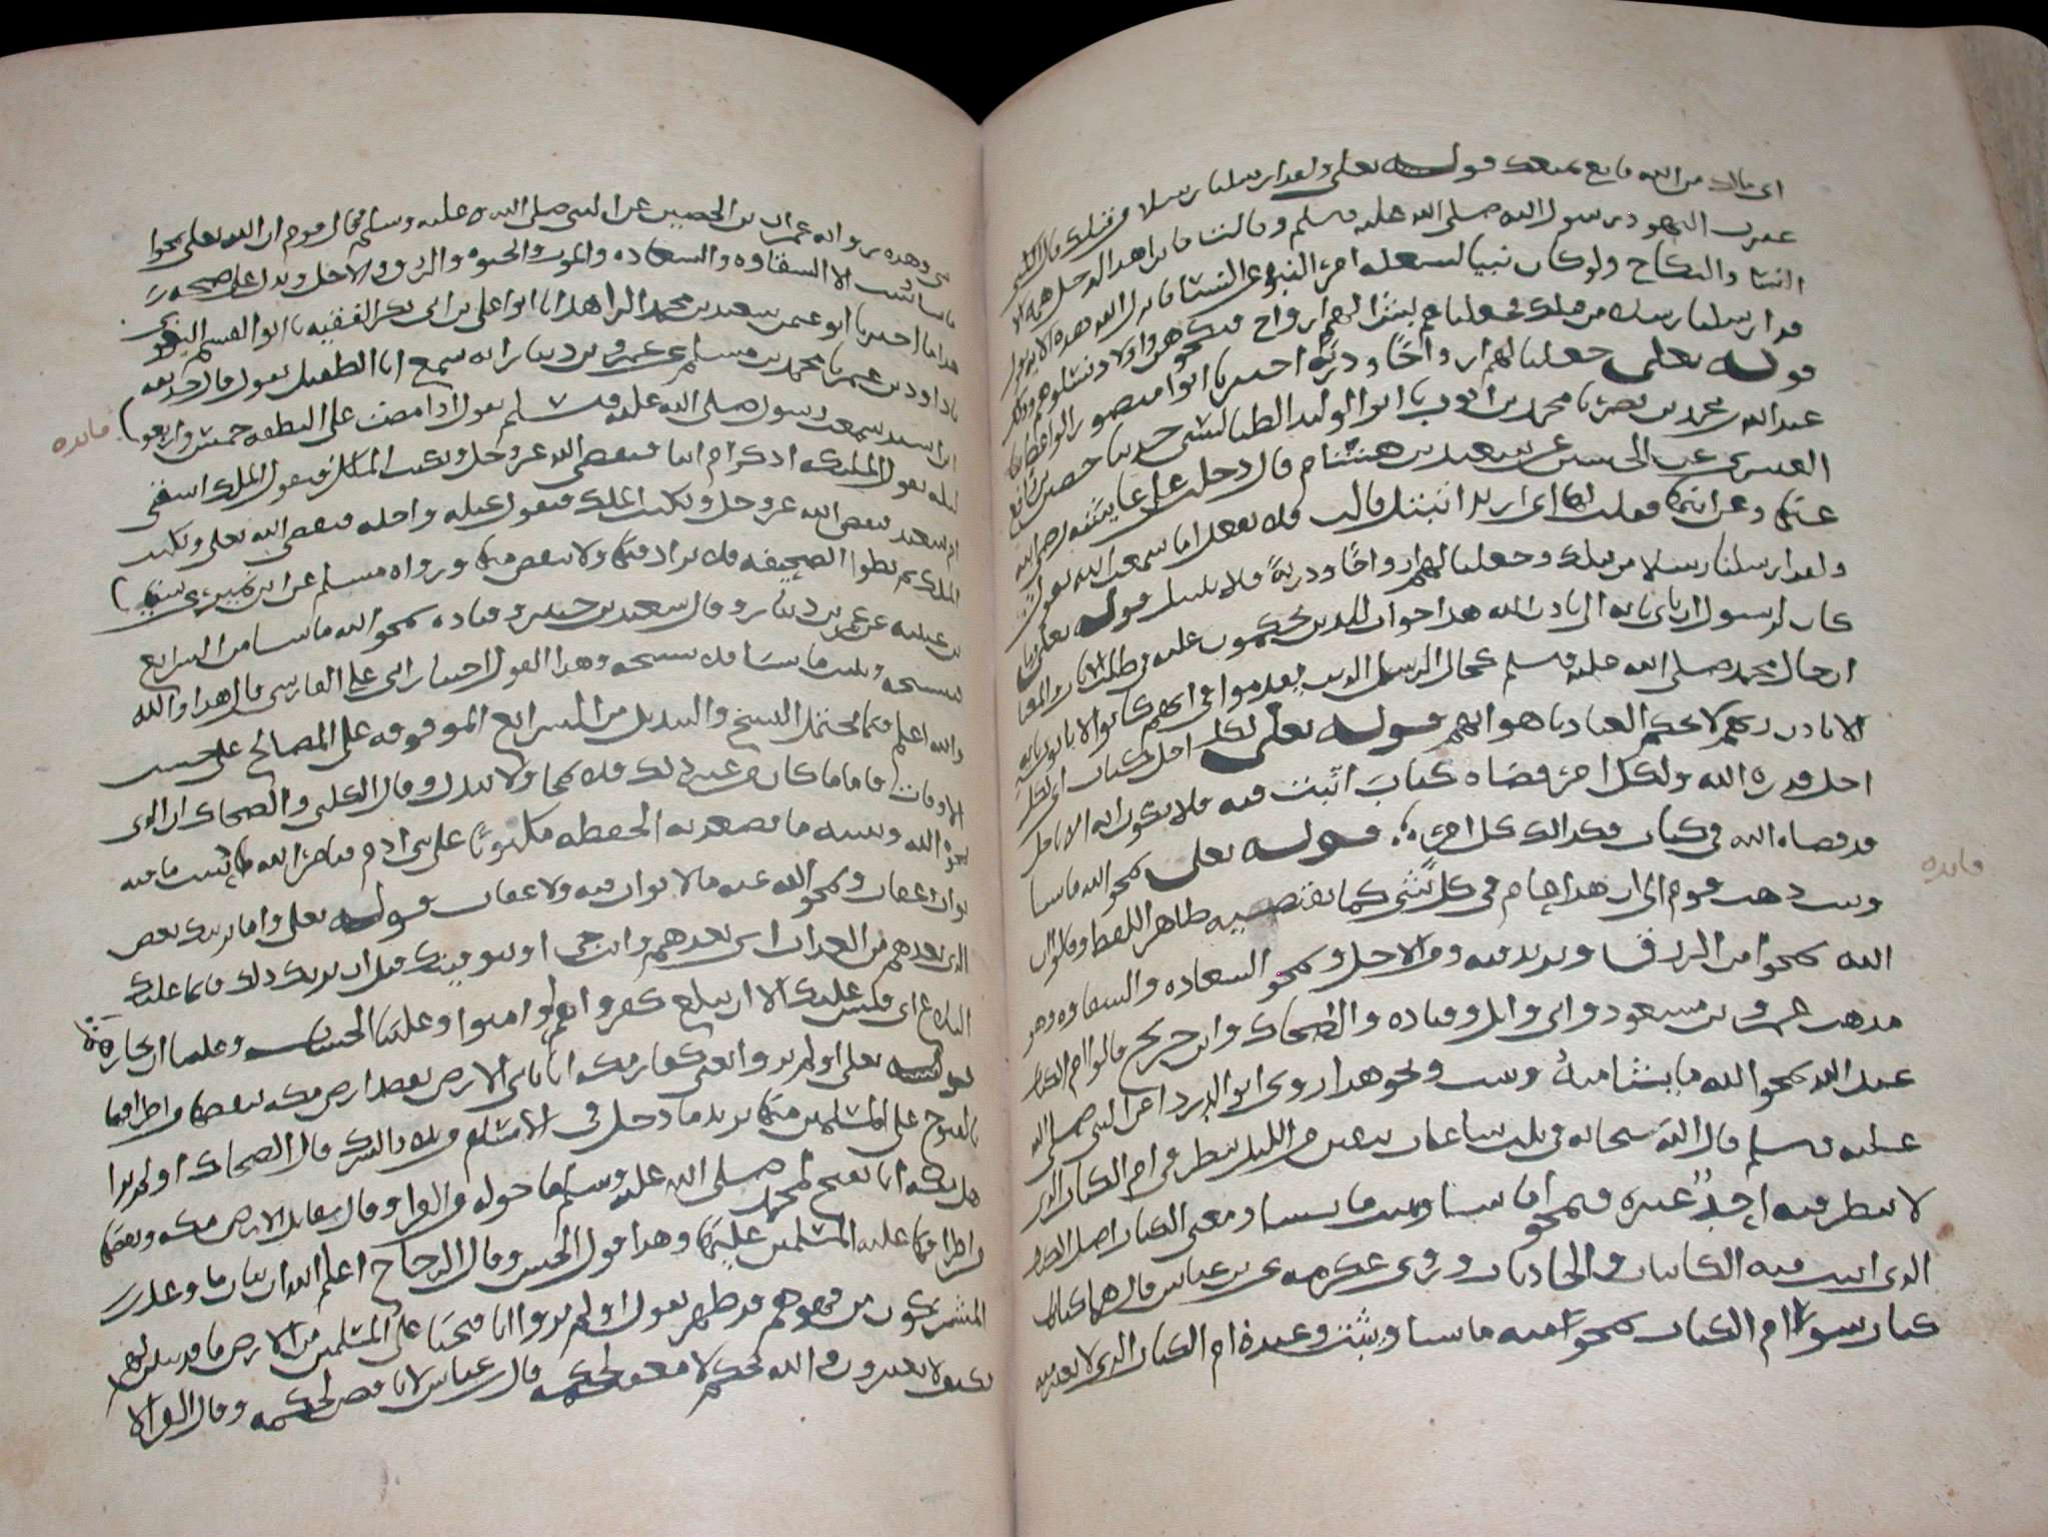 اى مالك من الله مانع يمنعك قوله تعلى ولقد ارسلنا رسلا من قبلك قال الكلبى
عيرت اليهود رسول الله صلى الله عليه وسلم وقالت ما نرا هذا الرجل همه الا
النسا والنكاح ولو كان نبيا لشغله امر النبوة عن النسا فانزل الله هذه الاية
قد ارسلنا رسلا من قبلك فجعلناهم بشرا لهم ازواج فنكحوهن واولاد نسلوهم وذلك
قوله تعلى جعلنا لهم ازواجا وذرية اخبرنا ابوا منصور
عبد الله بن محمد بن نصر نا محمد بن ايوب نا ابوا الوليد الطيالسى حدثنا حصين بن نافع
العنبرى عن الحسن عن سعيد بن هشام قال دخلت على عايشه رضى الله
عنها فقلت لها انى اريد ان اتبتل قالت فلا تفعل اما سمعت الله يقول
ولقد ارسلنا رسلا من قبلك وجعلنا لهم ازواجا وذرية فلا تتبتل قوله تعلى وما
كان لرسول ان ياتى باية الا باذن الله هذا جواب للذين يحكمون عليه فى طلب الايات والمعنا
ان حال محمد صلى الله عليه وسلم كحال الرسل الذين تقدموا فى انهم كانوا لا ياتون باية
الا باذن ربهم لا بحكم العباد باهوايهم قوله تعلى لكل اجل كتاب اى لكل
اجل قدره الله ولكل امر قضاه كتاب اثبت فيه فلا تكون اية الا باجل
قد قضاه الله فى كتاب وكذلك كل امر قوله تعلى يمحوا الله ما يشا
ويثبت ذهب قوم الى ان هذا عام فى كل شى كما يقتضيه ظاهر اللفظ وقالوا ان
الله يمحوا من الرزق ويزيد فيه ومن الاجل ويمحوا السعاده والشقاوه وهو
مذهب عمر وبن مسعود وابى وايل وقتاده والضحاك وابن جريج قالوا ام الكتاب
عند الله يمحوا الله ما يشا منه ويثبت ونحو هذا روى ابو الدرداء عن النبى صلى الله
عليه وسلم قال الله سبحانه فى ثلث ساعات يبقين من الليل ينظر فى ام الكتاب الذى
لا ينظر فيه احد غيره فيمحوا ما يشا ويثبت ما يشا ومعنى الكتاب اصل الكتاب
الذى اثبت فيه الكاينات والحادثات وروى عكرمه عن بن عباس قال هما كتابان
كتاب سوى ام الكتاب يمحوا منه ما يشا ويثبت وعنده ام الكتاب الذى لا يغير منه
فايده
شى وهذه رواية عمران بن الحصين عن النبى صلى الله عليه وسلم وقال قوم ان الله تعلى يمحوا
ما يشا ويثبت الا الشقاوه والسعاده والموت والحيوه والرزق والاجل ويدل على صحة
هذا ما اخبرنا ابو عمر سعيد بن محمد الزاهد انا ابوا على بن ابى بكر الفقيه نا ابوا القسم البغوى
نا داود بن عمر نا محمد بن مسلم عن عمرو بن دينار انه سمع ابا الطفيل يقول قال حذيفه
ابن اسيد سمعت رسول الله صلى الله عليه وسلم يقول اذا مضت على النطفه خمس واربعون
ليله يقول الملك اذكر ام انثا فيقضى الله عز وجل ويكتب الملك فيقول الملك اشقى
ام سعيد فيقضى الله عز وجل ويكتب الملك فيقول عمله واجله فيقضى الله تعلى ويكتب
الملك ثم تطوا الصحيفه فلا يزاد فيها ولا ينقص منها ورواه مسلم عن ابن نمير عن سفين
بن عيينه عن عمرو بن دينار وقال سعيد بن جبير وقتاده يمحوا الله ما يشا من الشرايع
فينسخه ويثبت ما يشا فلا ينسخه وهذا القول اختيار ابى على الفارسى قال هذا والله
والله اعلم فيما يحتمل النسخ والتبديل من الشرايع الموقوفه على المصالح على حسب
الاوقات فاما ما كان من غير ذلك فلا يمحا ولا يبدل وقال الكلبى والضحاك ان الذى
يمحوه الله ويثبته ما تصعد به الحفظه مكتوبا على بنى ادم فيامر الله ان يثبت ما فيه
ثواب وعقاب ويمحوا الله عنه ما لا ثواب فيه ولا عقاب قوله تعلى واما نرينك بعض
الذى نعدهم من العذاب اى نعدهم وانت حى او نتوفينك قبل ان نريك ذلك فانما عليك
البلاغ اى فليس عليك الا ان تبلغ كفروا به او امنوا وعلينا الحساب وعلينا ان نجازيهم
قوله تعلى اولم يروا يعنى كفار مكه انا ناتى الارض نقصد ارض مكه ننقصها من اطرافها
بالفتوح على المسلمين منها يريد ما دخل فى الاسلام من بلاد الشرك قال الضحاك اولم يرا
اهل مكه انا نفتح لمحمد صلى الله عليه وسلم ما حوله من القرا وقال مقاتل الارض مكه ونقصها
من اطرافها غلبة المسلمين عليها وهذا قول الحسن وقال الزجاج اعلم الله ان بيان ما وعد
المشركون من قهرهم قد ظهر يقول اولم يروا انا فتحنا على المسلمين من الارض ما قد تبين لهم
فكيف لا يعتبرون والله يحكم لا معقب لحكمه قال بن عباس لا ناقض لحكمه وقال الفرا لا
فايده